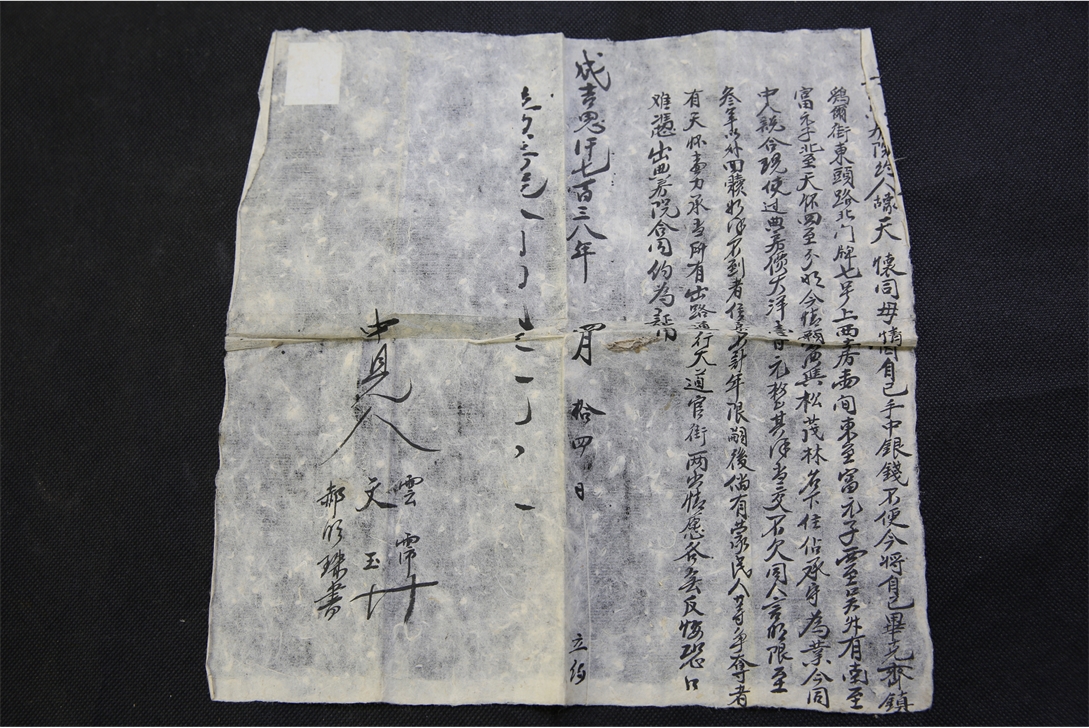 房院約人祿天懷同母情因自己手中銀錢不便今將自己畢克齊鎮
鷄爾街東頭路北门牌七号上西房兩间東至富元子西至吴外有南至
富元子北至天怀四至分明今情願典與松茂林名下住佔承守為業今同
中人説合現使过典房價大洋壹百元整其洋当交不欠同人言明限至
叁年以外回贖如洋不到者住 不計年限嗣後倘有蒙民人等争奪者
有天怀壹力承当所有出路通行大道官街兩出情愿各無反悔恐口
难憑出典房院合同約為証用
成吉思汗七百三八年 四月 拾四日 立約
中見人
雲霈 十
天玉 十
郝明珠書